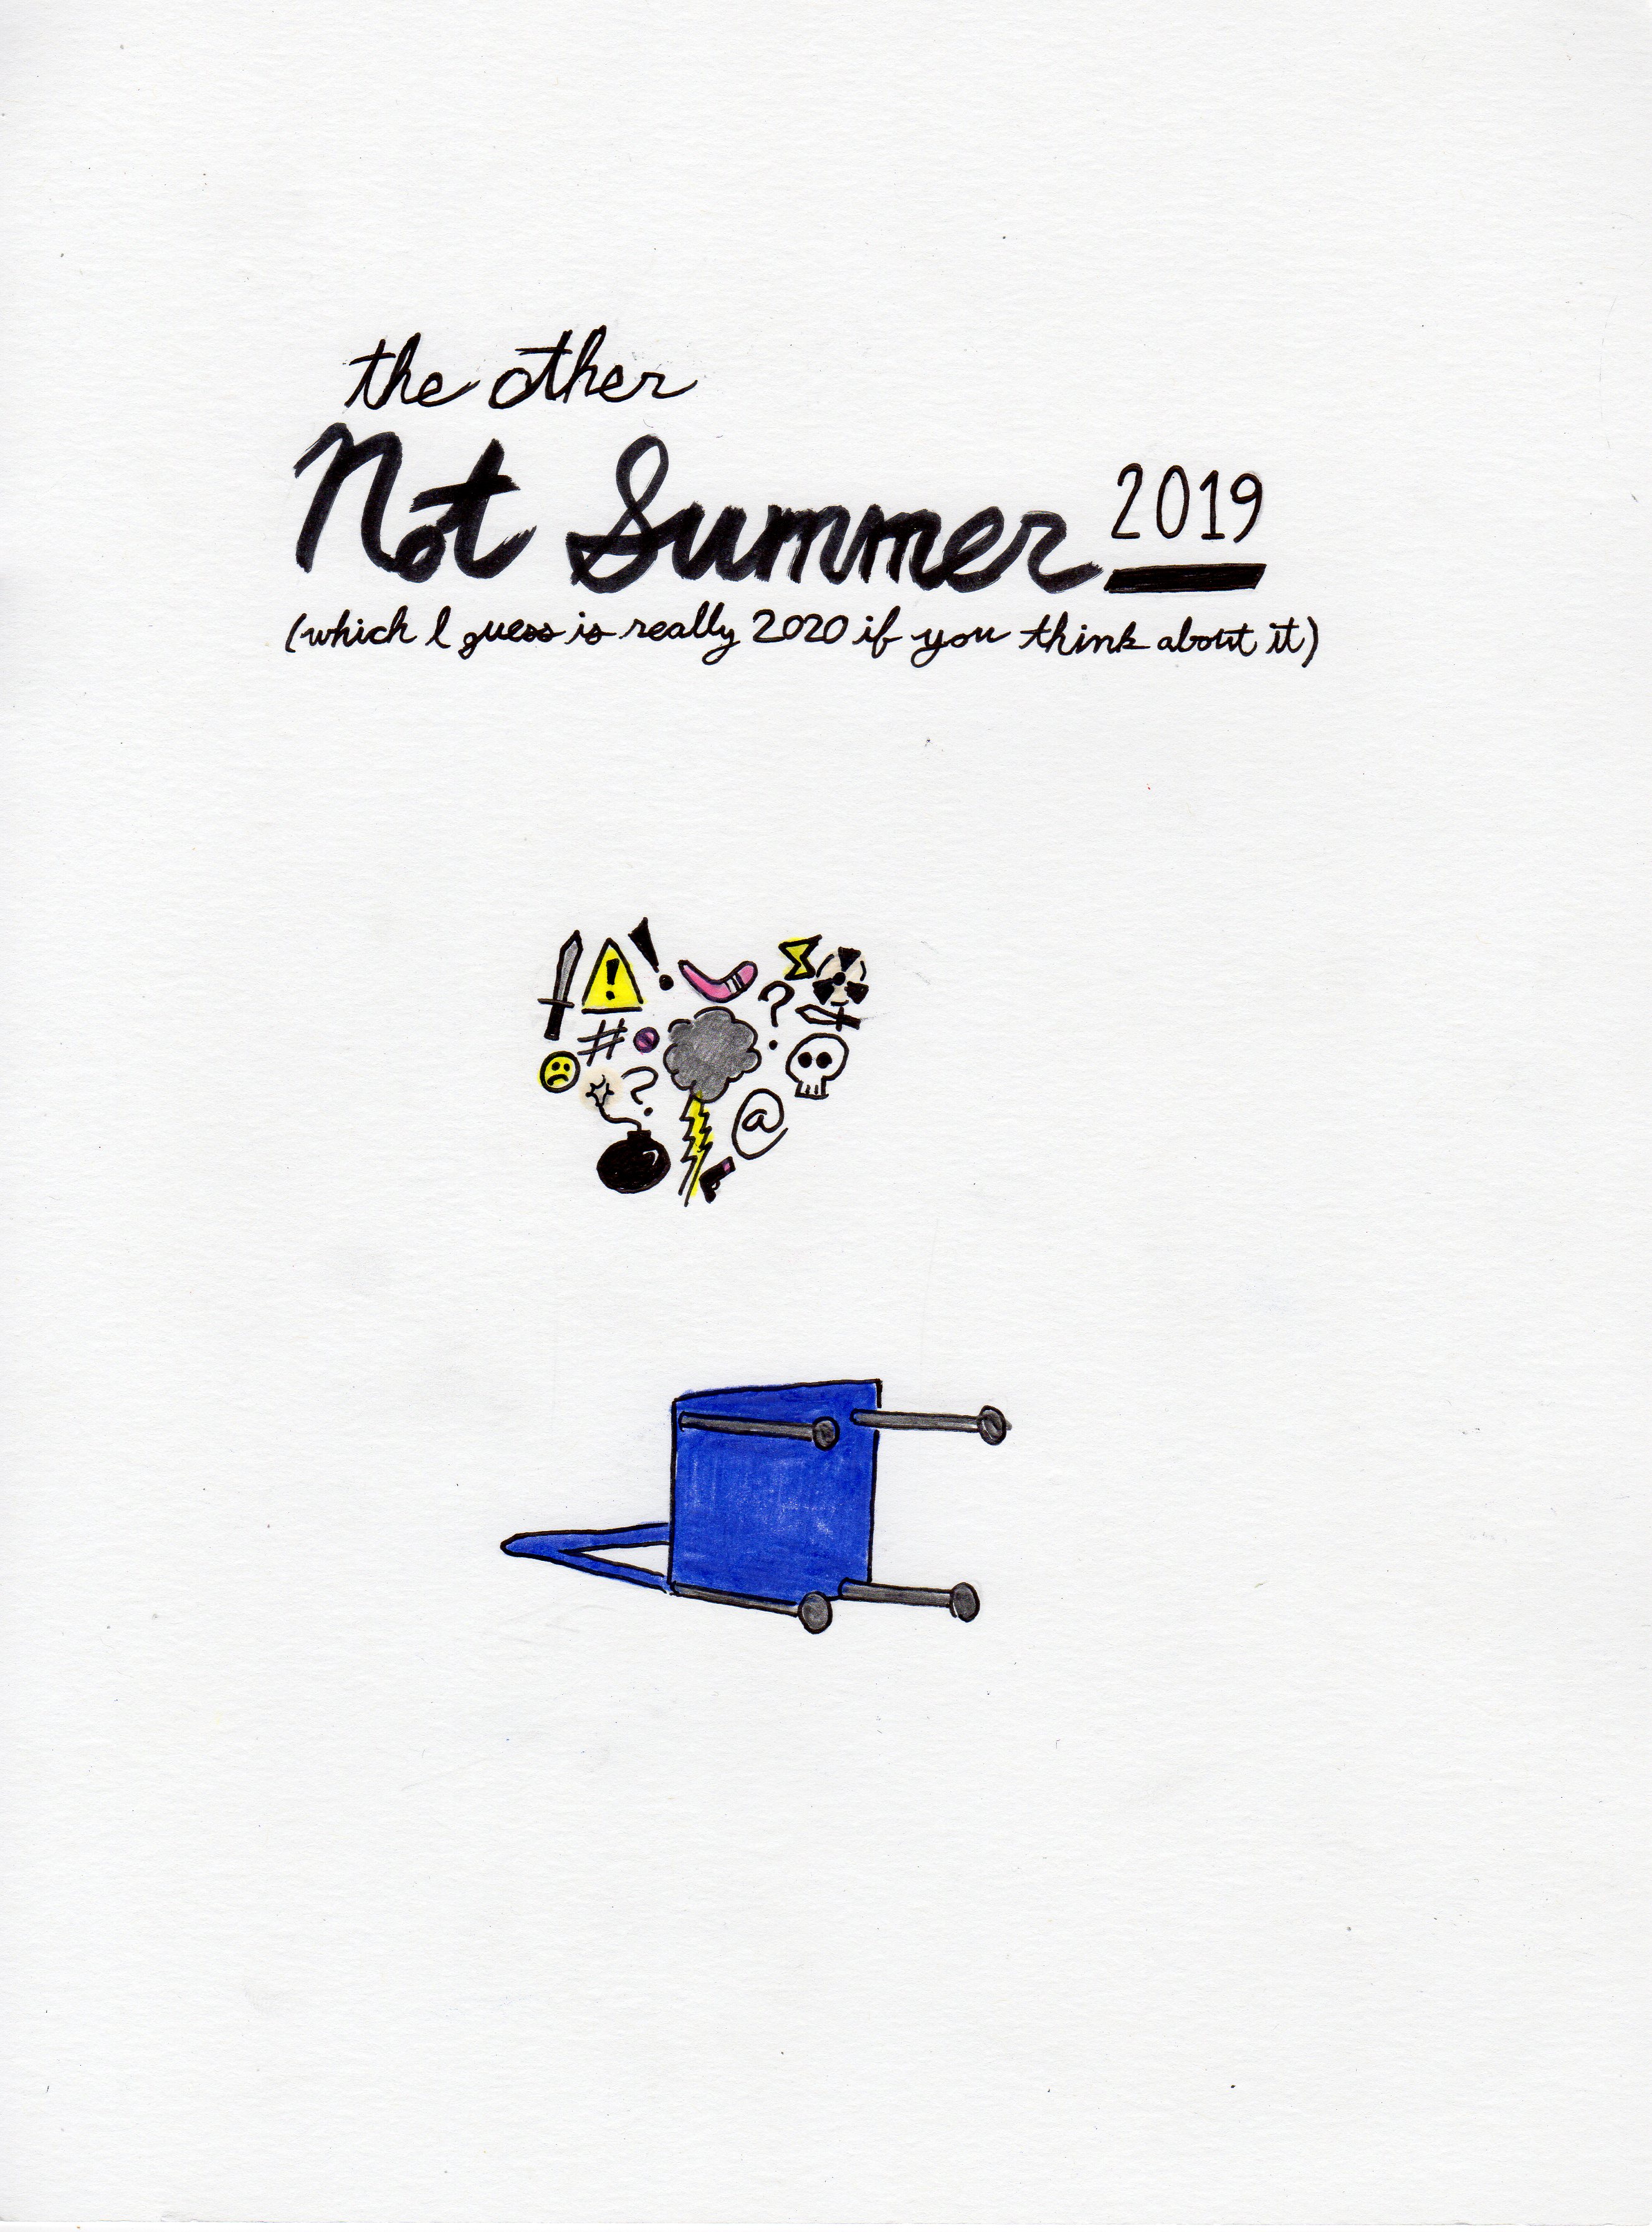 the other
Not Summer 2019
(which I guess is really 2020 if you think about it)
! !
?
#
?
@